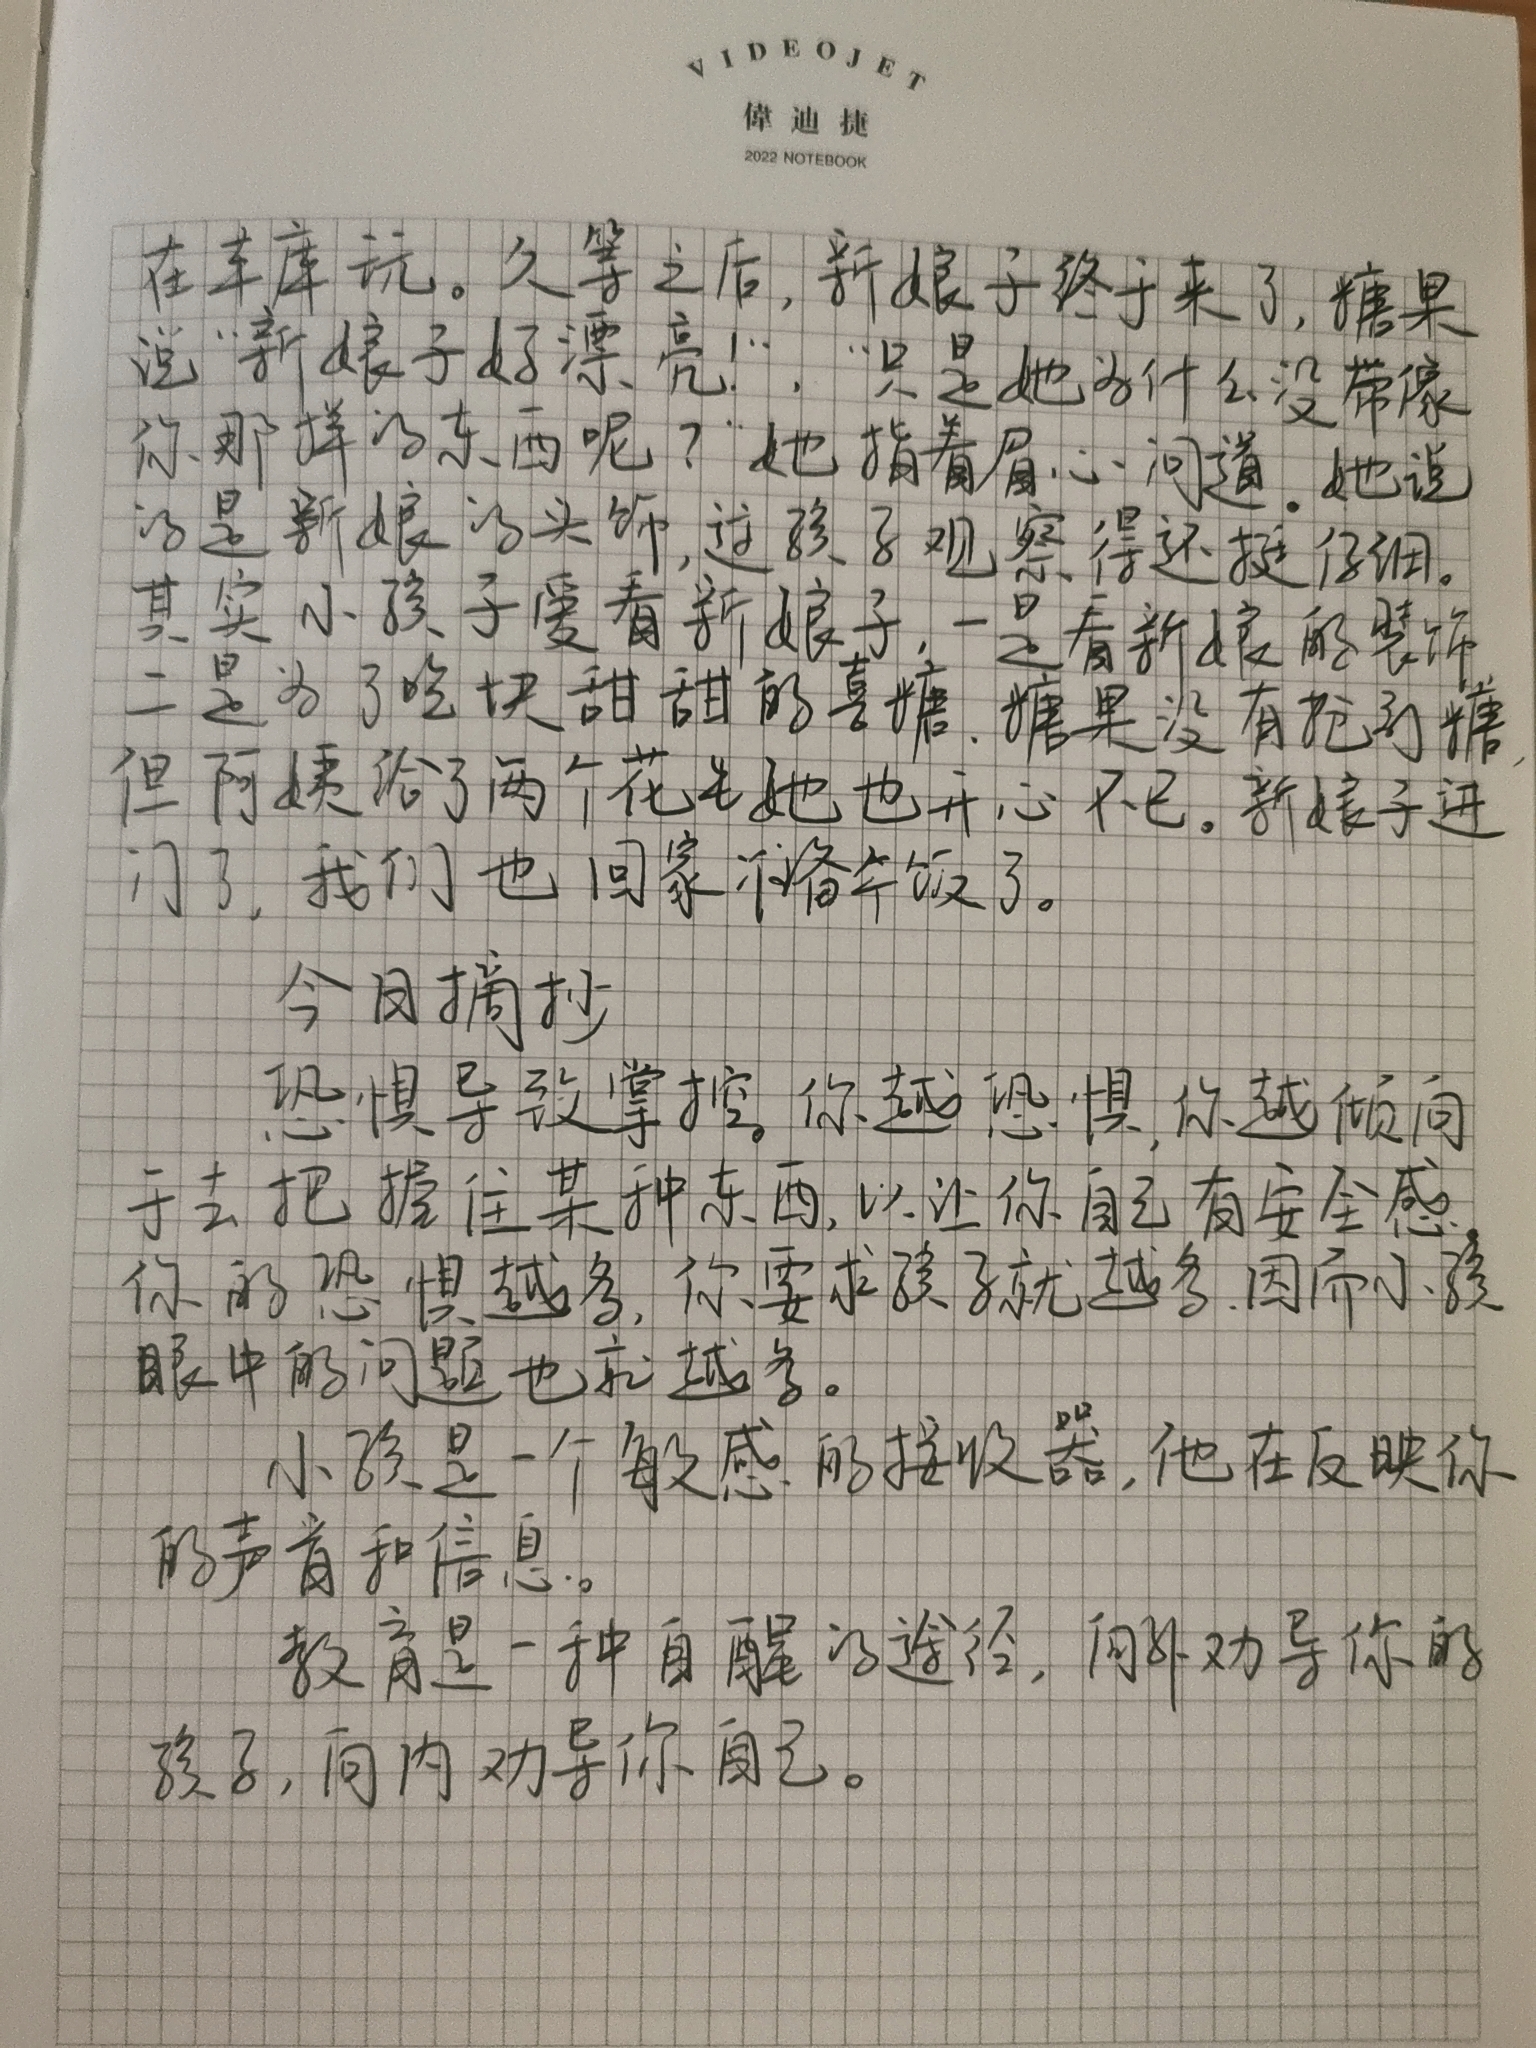 VIDEOJET
偉迪捷
2022 NOTEBOOK
在车库玩。久等之后,新娘子终于来了,糖果
说“新娘子好漂亮!”,“只是她为什么没带像
你那样的东西呢?”她指着眉心问道。她说
的是新娘的头饰,这孩子观察得还挺仔细。
其实小孩子爱看新娘子,一是看新娘的装饰
二是为了吃块甜甜的喜糖.糖果没有抢到糖,
但阿姨给了两个花生她也开心不已。新娘子进
门了,我们也回家准备午饭了。
今日摘抄
恐惧导致掌控。你越恐惧,你越倾向
于去把握住某种东西,以让你自己有安全感.
你的恐惧越多,你要求孩子就越多.因而小孩
眼中的问题也就越多。
小孩是一个敏感的接收器,他在反映你
的声音和信息。
教育是一种自醒的途径,向外劝导你的
孩子,向内劝导你自己。